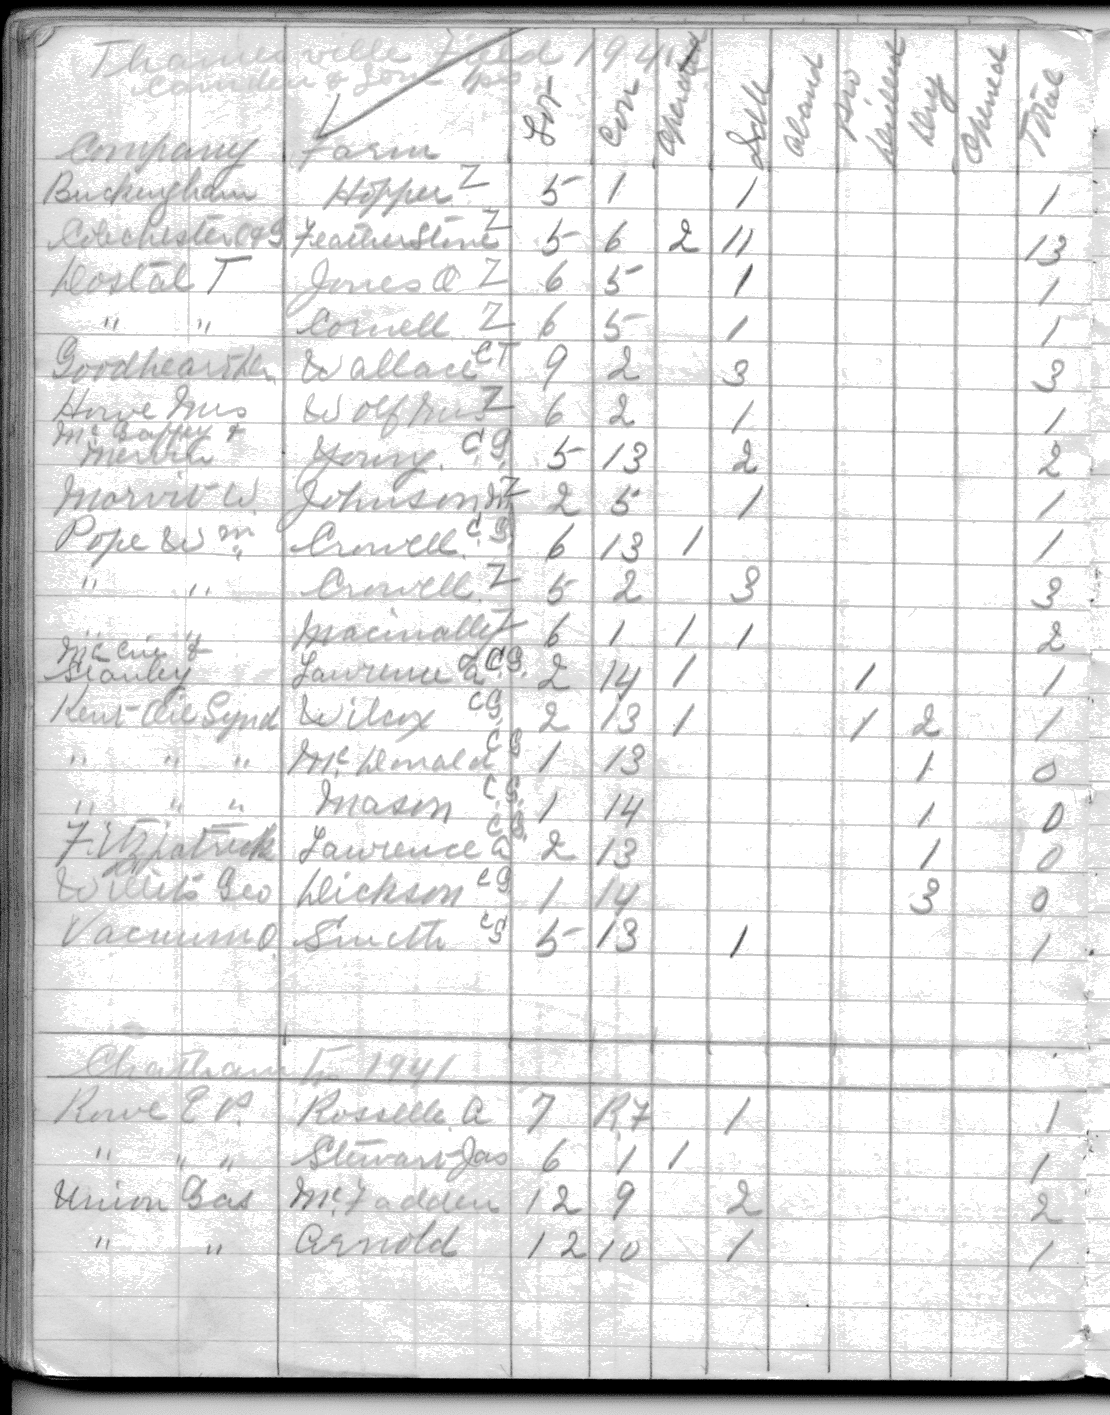 Thamesville Field 1941
Camden & Zone Gas
Company Farm Lot Con Operated Idle Aband Pro Drilled Dry Opened Total
Buckingham Hopper Z 5 1 1 1
Colchester O & G Featherstone Z 5 6 2 11 13
Dostal T Jones O Z 6 5 1 1
" " Cornell Z 6 5 1 1
Wallace CT 9 2 3 3
Howe Z 6 2 1 1
Young C.G. 5 13 2 2
W. Johnson Z 2 5 1 1
Pope Wm Crowell C.G. 6 13 1 1
" " Crowell Z 5 2 3 3
" " Z 6 1 1 1 2
Stanley Lawrence C.G. 2 14 1 1 1
Kent Oil Synd Wilcox CG 2 13 1 1 2 1
" " " McDonald CG 1 13 1 0
" " " Mason C.G. 1 14 1 0
Fitzpatrick Lawrence C.G. 2 13 1 0
Geo Dickson CG 1 14 3 0
Vacuum O. Smith CG 5 13 1 1
Chatham Tp 1941
Rowe E P. A 7 R.7 1 1
" " " Stewart Jas 6 1 1 1
Union Gas McFadden 12 9 2 2
" " Arnold 12 10 1 1